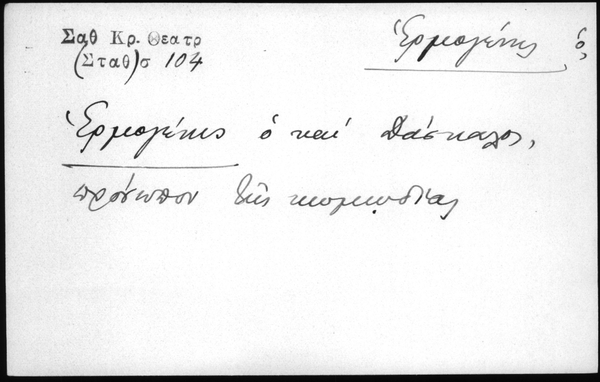 Σαθ Κρ. Θεατρ
(Σταθ)σ 104
Ἑρμογένης ὁ,
Ἑρμογένης ὁ καὶ Πάσκαλος,
πρόσωπον τῆς κωμῳδίας